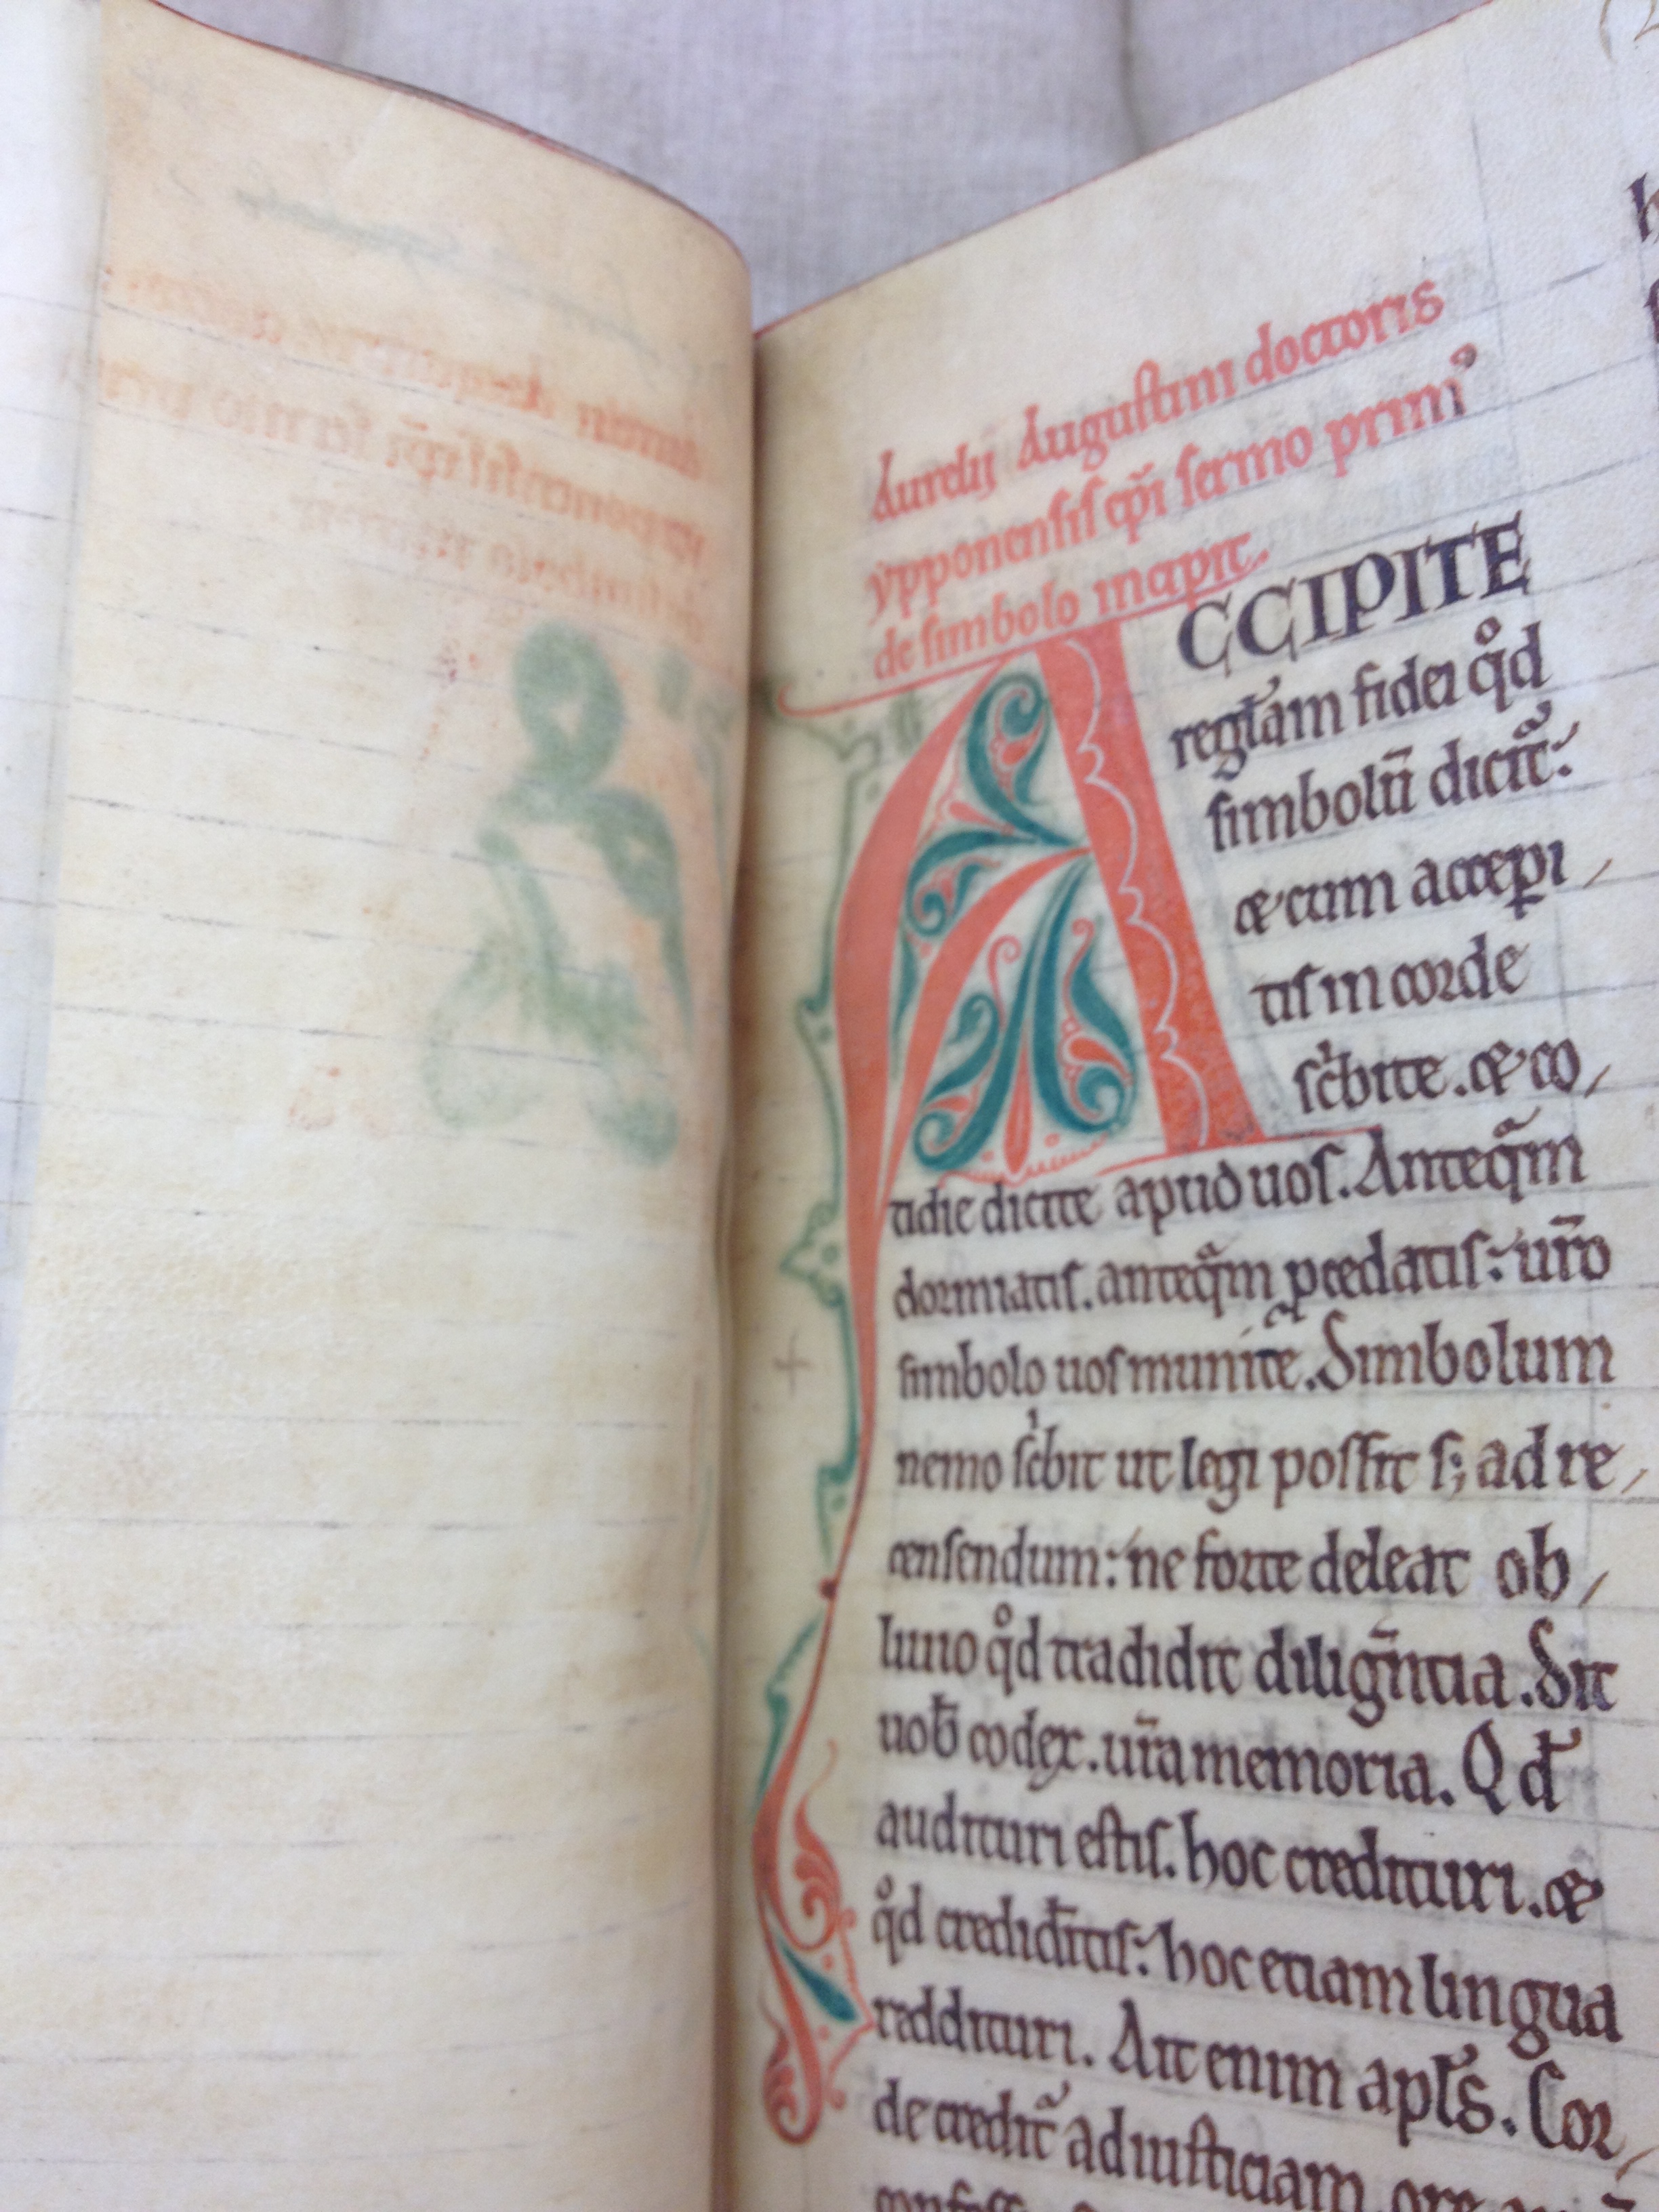 Aurelij Augustini doctoris
ypponensis ep̃i sermo prim᷒
de simbolo incipit.
ACCIPITE
regl̃am fidei qͦd
simbolũ dicit᷑:
& cum acceꝑi
tis in corde
sc̍bite. & co
tidie dicite apud uos. Anteqᷓm
dormiatis. anteqᷓm ꝓcedatis: ur̃o
simbolo uos munite. Simbolum
nemo sc̍bit ut legi possit s; ad re
censendum: ne forte deleat ob
liuio qͦd tradidit diligñtia. Sit
uob̃ codex. ur̃a memoria. Qd̃
audituri estis. hoc credituri. &
qͦd credid̃itis: hoc etiam lingua
reddituri. Ait enim apl̃s. Cor
de credit᷑ ad iusticiam ore